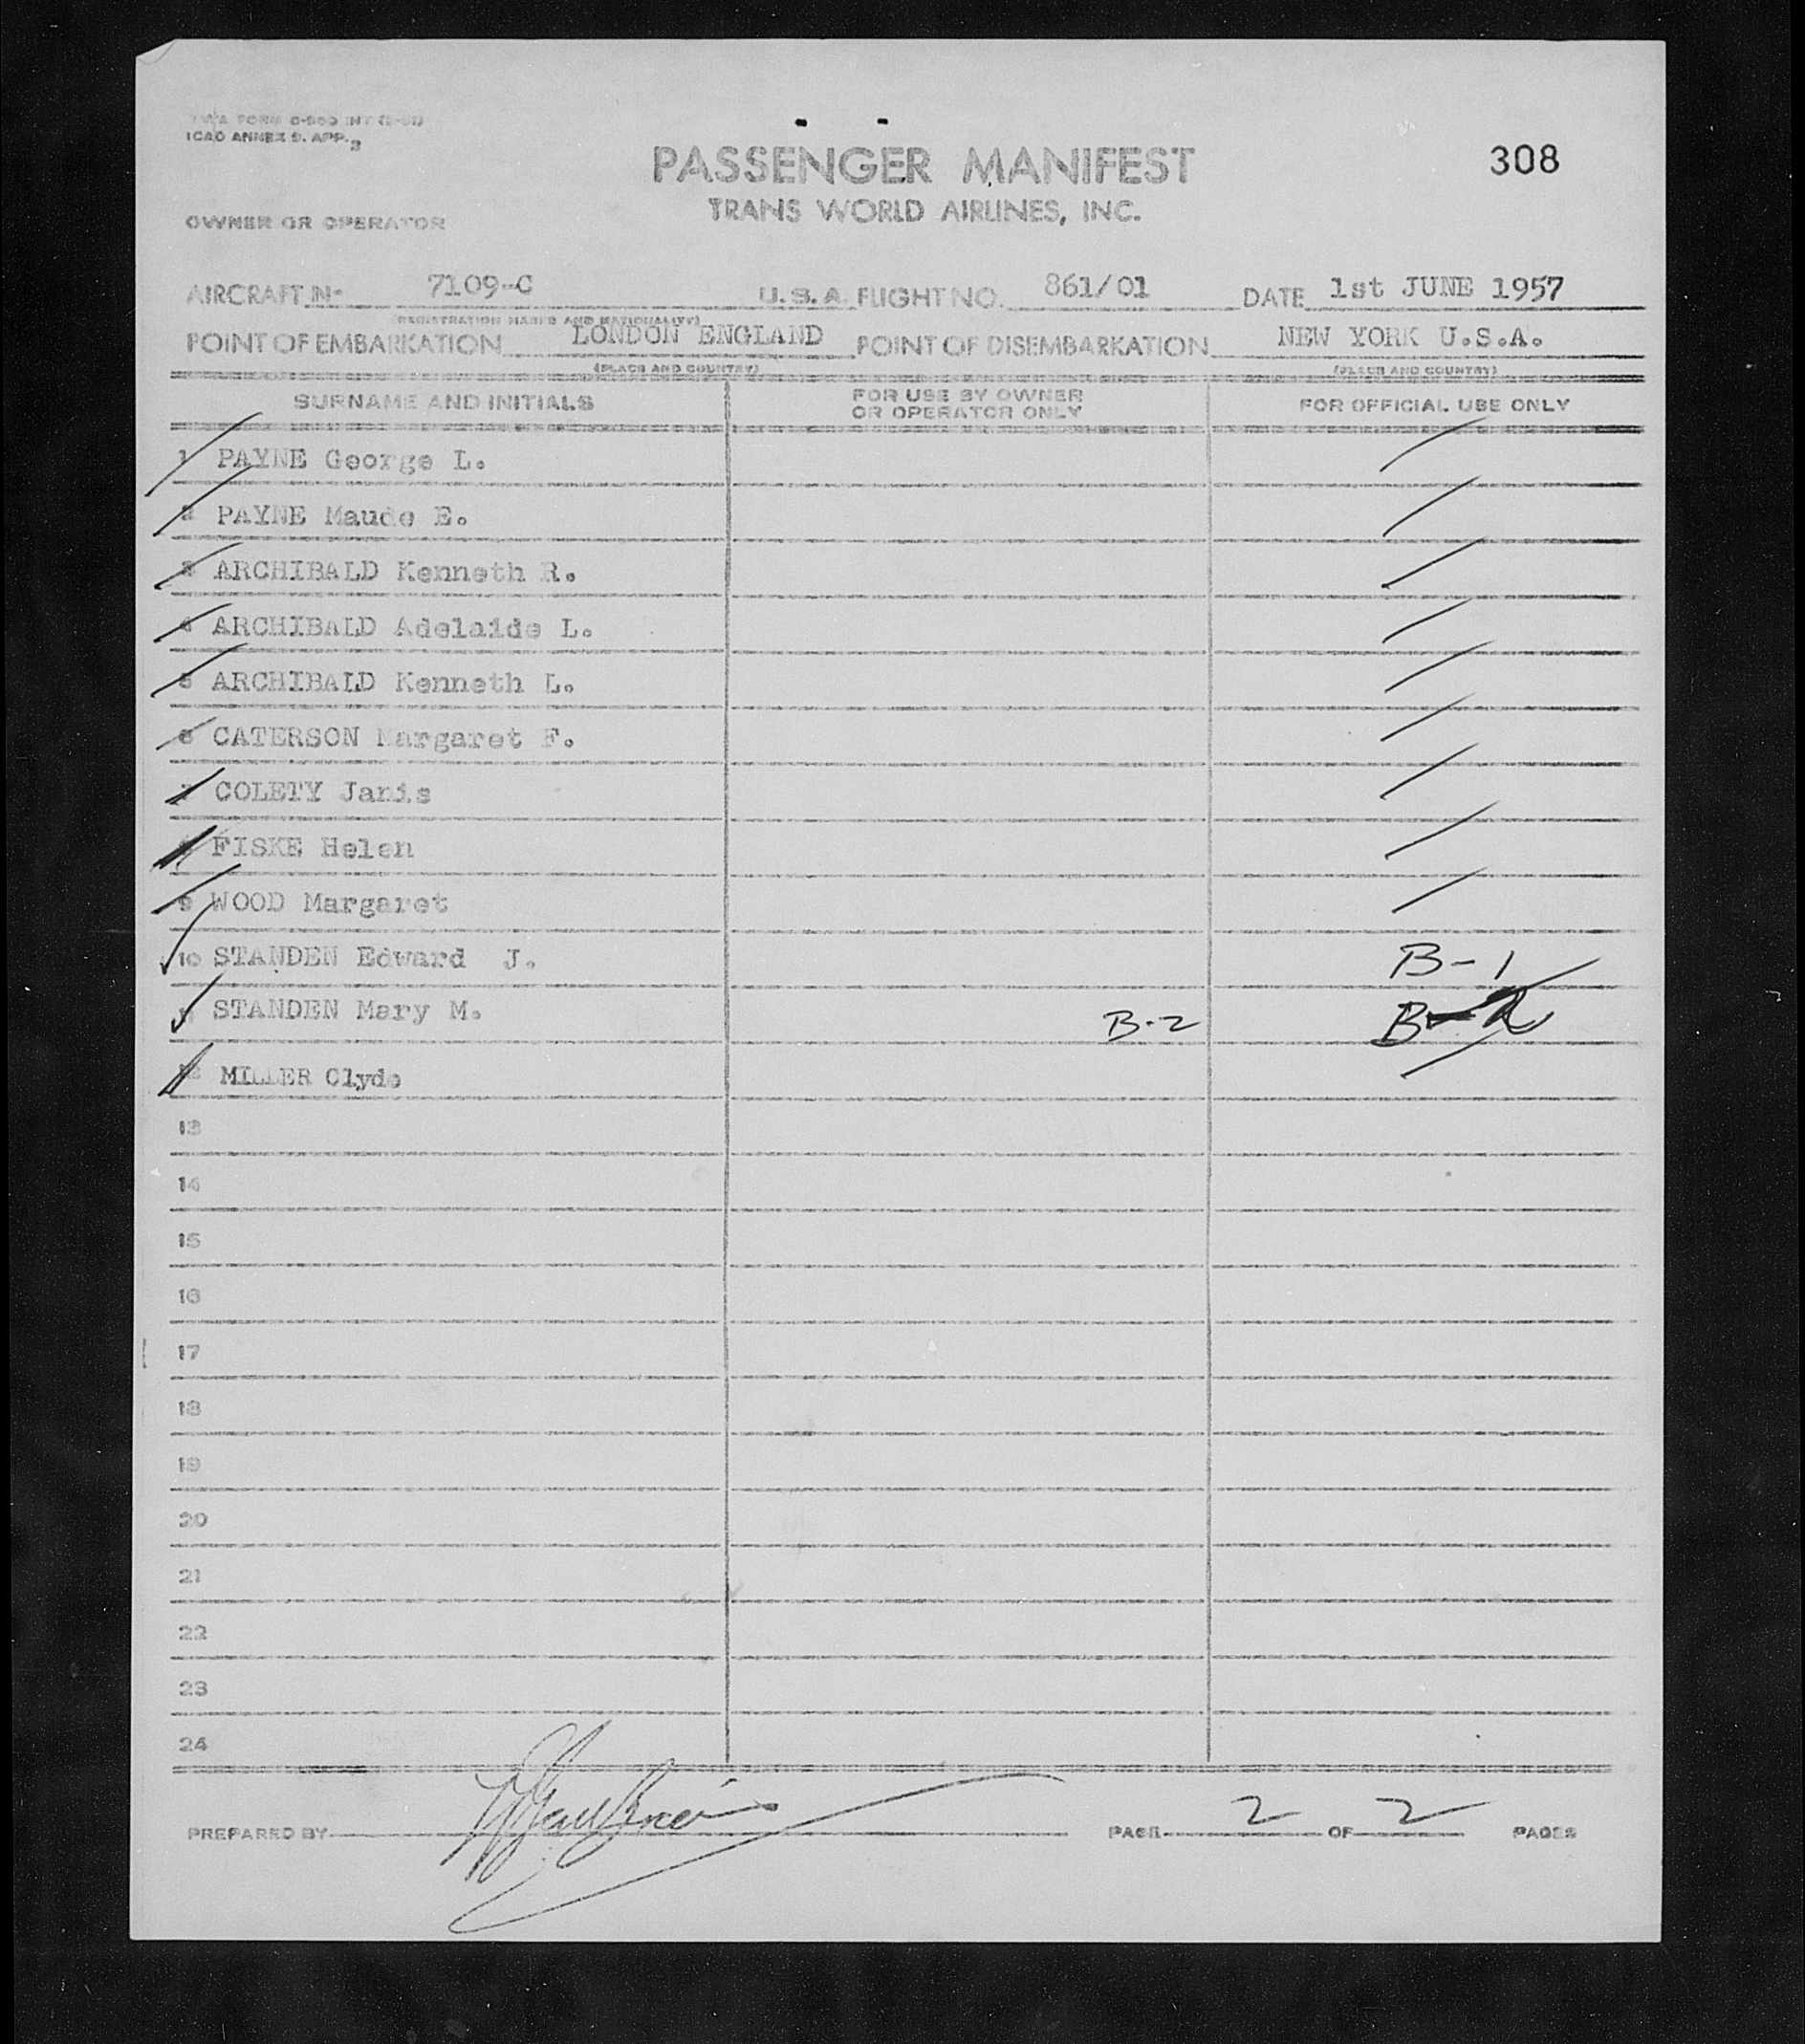 TWA FORM O-500 INT
ICAO ANNEX 9. APP. 3
308
PASSENGER MANIFEST
TRANS WORLD AIRLINES, INC.
OWNER OR OPERATOR
AIRCRAFT No 7109-C U.S.A. FLIGHT NO. 861/01 DATE 1st JUNE 1957
(REGISTRATION MARKS AND NATIONALITY)
POINT OF EMBARKATION LONDON ENGLAND POINT OF DISEMBARKATION NEW YORK U.S.A.
(PLACE AND COUNTRY) (PLACE AND COUNTRY)
SURNAME AND INITIALS FOR USE BY OWNER OR OPERATOR ONLY FOR OFFICIAL USE ONLY
1 PAYNE George L.
2 PAYNE Maude E.
3 ARCHIBALD Kenneth R.
4 ARCHIBALD Adelaide L.
5 ARCHIBALD Kenneth L.
6 CATERSON Margaret F.
7 COLETY Janis
8 FISKE Helen
9 WOOD Margaret
10 STANDEN Edward J. B-1
11 STANDEN Mary M. B-2 B-2
12 MILLER Clyde
13
14
15
16
17
18
19
20
21
22
23
24
PREPARED BY PAGE 2 OF 2 PAGES